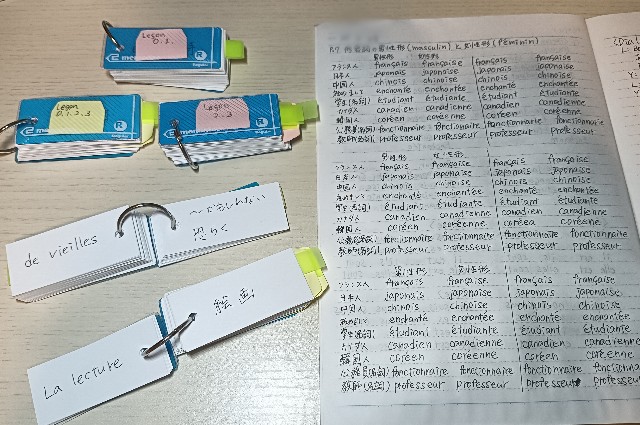 Leçon
0.1.
Leçon
0.1.2.3
Leçon
2.3
de vieilles
〜かもしれない
恐らく
La lecture
絵画
(masculin) と女性形 (féminin)
男性形 女性形
フランス人 français française français française
日本人 japonais japonaise japonais japonaise
中国人 chinois chinoise chinois chinoise
初めまして enchanté enchantée enchanté enchantée
学生(名詞) étudiant étudiante étudiant étudiante
カナダ人 canadien canadienne canadien canadienne
韓国人 coréen coréenne coréen coréenne
公務員(名詞) fonctionnaire fonctionnaire fonctionnaire fonctionnaire
教師(名詞) professeur professeur professeur professeur
男性形 女性形
フランス人 français française français française
日本人 japonais japonaise japonais japonaise
中国人 chinois chinoise chinois chinoise
初めまして enchanté enchantée enchanté enchantée
学生(名詞) étudiant étudiante étudiant étudiante
カナダ人 canadien canadienne canadien canadienne
韓国人 coréen coréenne coréen coréenne
公務員(名詞) fonctionnaire fonctionnaire fonctionnaire fonctionnaire
教師(名詞) professeur professeur professeur professeur
男性形 女性形
フランス人 français française français française
日本人 japonais japonaise japonais japonaise
中国人 chinois chinoise chinois chinoise
初めまして enchanté enchantée enchanté enchantée
学生(名詞) étudiant étudiante étudiant étudiante
カナダ人 canadien canadienne canadien canadienne
韓国人 coréen coréenne coréen coréenne
公務員(名詞) fonctionnaire fonctionnaire fonctionnaire
教師(名詞) professeur professeur professeur